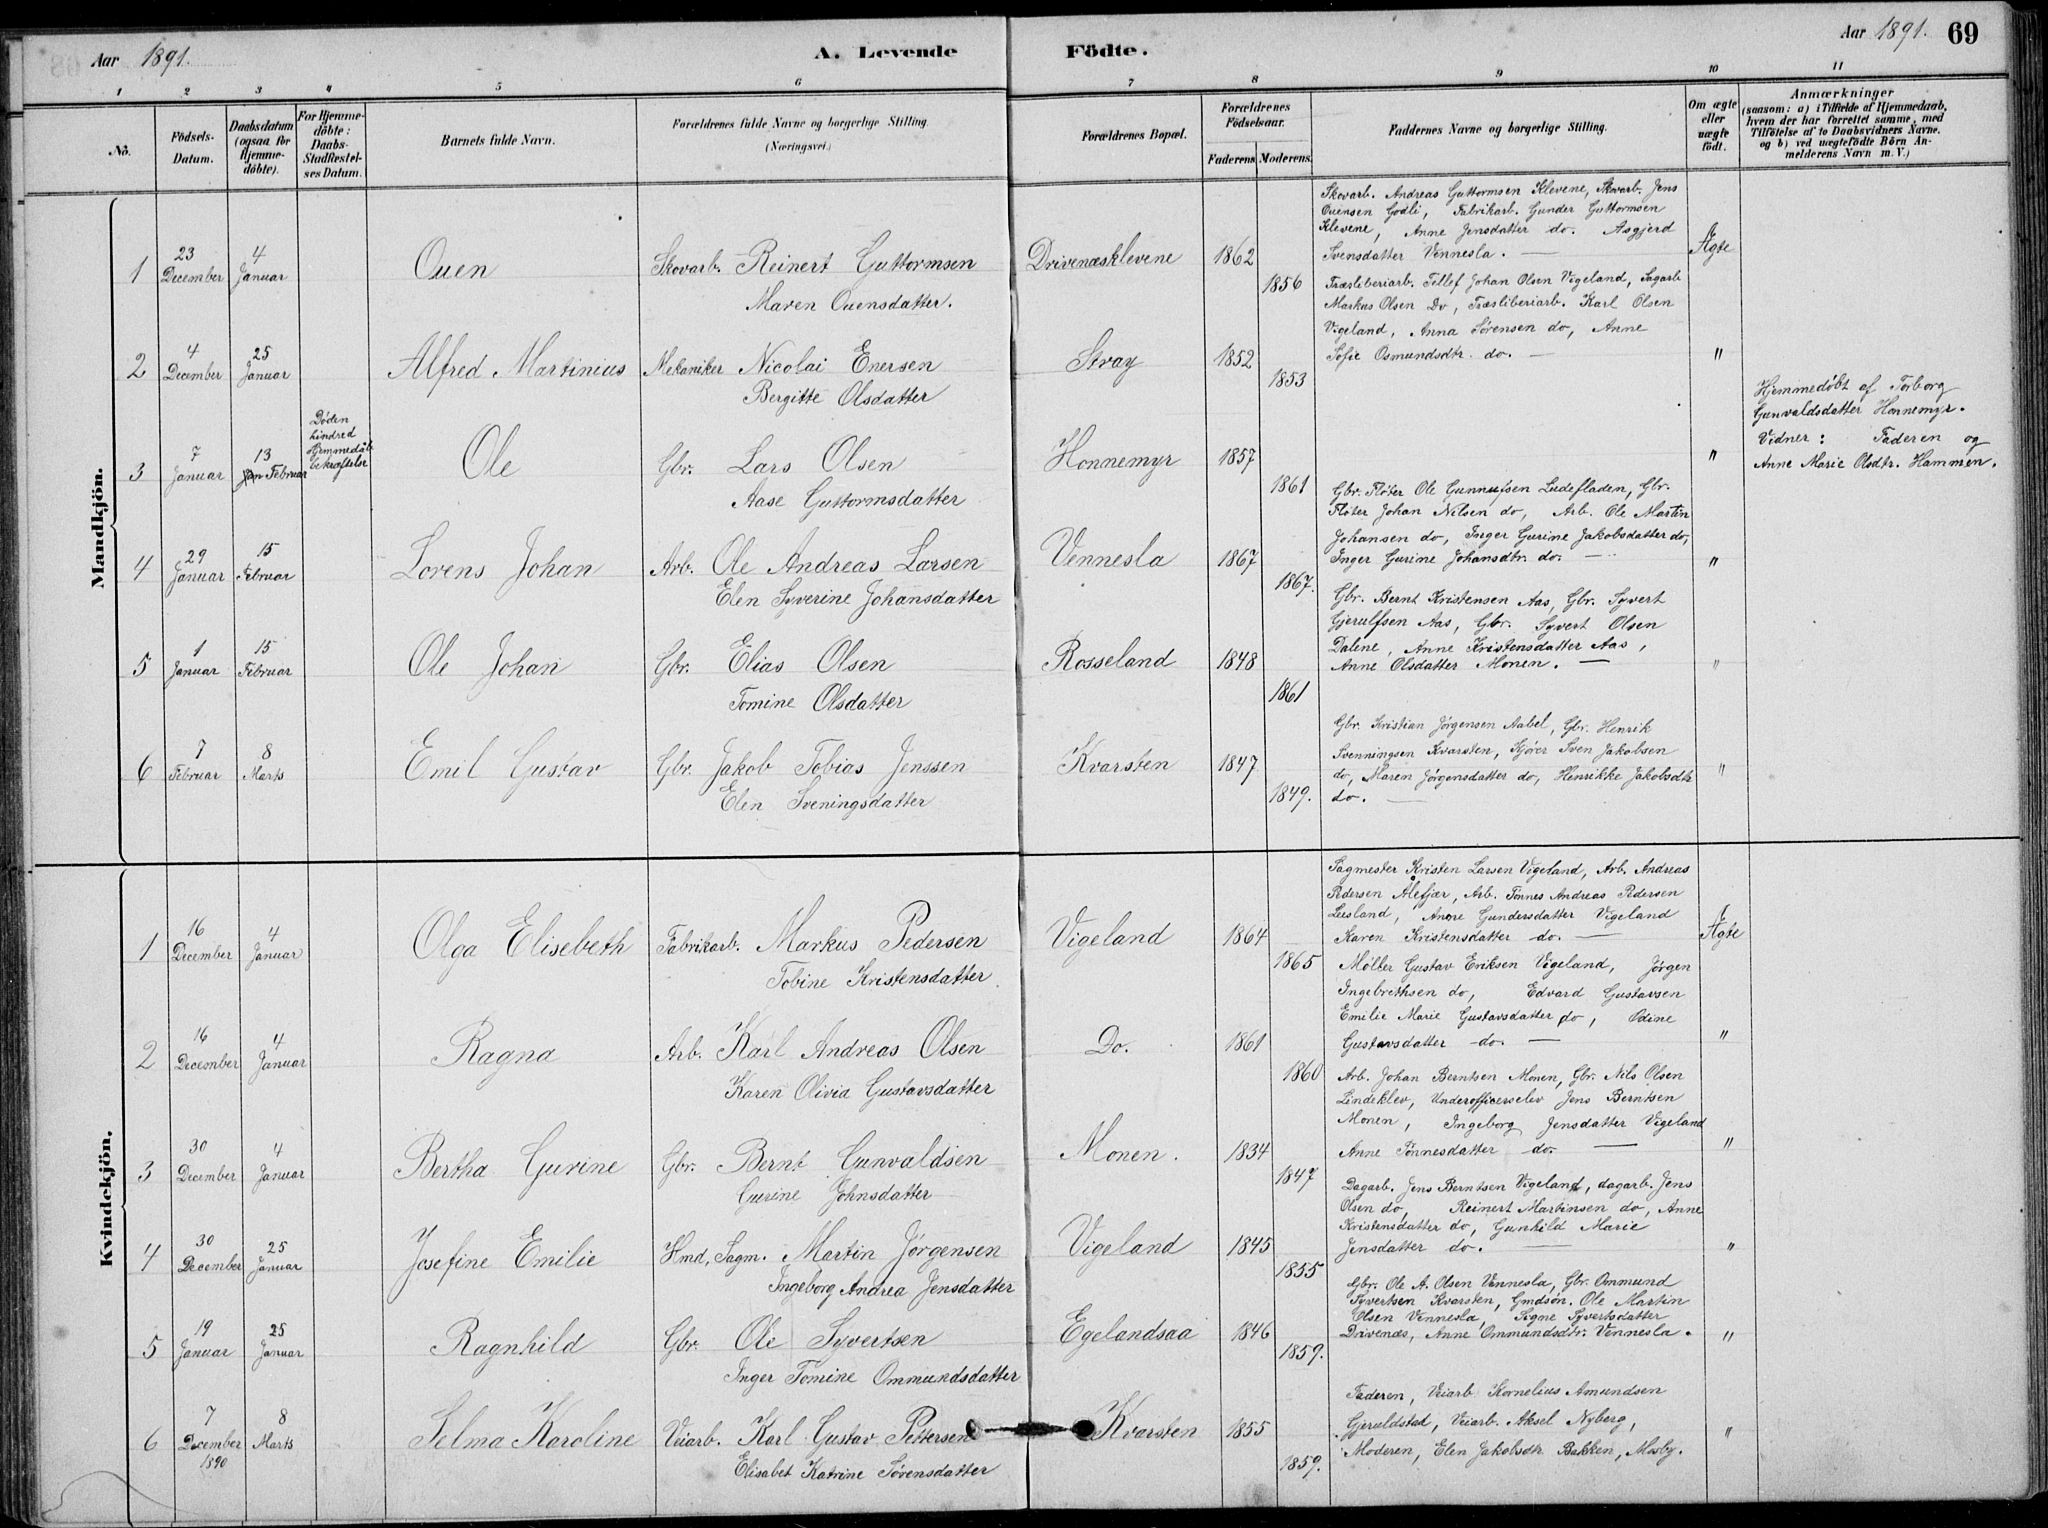 Aar 1891.
A. Levende Födte.
Aar 1891. 69
1 2 3 4 5 6 7 8 9 10 11
No.
Födsels-Datum.
Daabsdatum (ogsaa for Hjemmedöbte).
For Hjemmedöbte: Daabs-Stadfæstelses Datum.
Barnets fulde Navn.
Forældrenes fulde Navne og borgerlige Stilling.
(Næringsvei.)
Forældrenes Bopæl.
Forældrenes Födselsaar.
Faderens. Moderens.
Faddernes Navne og borgerlige Stilling.
Om ægte eller uægte födt.
Anmærkninger
(saasom: a) i Tilfælde af Hjemmedaab, hvem der har forrettet samme, med Tilföielse af to Daabsvidners Navne. og b) ved uægtefödte Börn Anmelderens Navn m. V.)
Mandkjön.
1 23 December 4 Januar Ouen Skovarb. Reinert Guttormsen Drivenæsklevene 1862 Ægte
Maren Ouensdatter. 1856
Skovarb. Andreas Guttormsen Klevene, Skovarb. Jens
Ouensen Godli, Fabrikarb. Gunder Guttormsen
Klevene, Anne Jensdatter do. Asgjerd
Svensdatter Vennesla. —
2 4 December 25 Januar Alfred Martinius Mekaniker Nicolai Enersen Stray 1852 "
Bergitte Olsdatter 1853
Træsliberiarb. Tellef Johan Olsen Vigeland, Sagarb
Markus Olsen Do, Træsliberiarb. Karl Olsen
Vigeland, Anna Sørensen do, Anne
Sofie Osmundsdtr. do. —
3 7 Januar 13 Jan Februar Døden hindred Hjemmedaab bekræftelse Ole Gbr. Lars Olsen Honnemyr 1857 "
Aase Guttormsdatter 1861
Hjemmedøbt af Torborg
Gunvaldsdatter Honnemyr.
Vidner: Faderen og
Anne Marie Olsdtr. Hammen.
4 29 Januar 15 Februar Lorens Johan Arb. Ole Andreas Larsen Vennesla 1867 "
Elen Syverine Johansdatter 1867.
Gbr. Fløter Ole Gunnufsen Ludefladen, Gbr.
Fløter Johan Nilsen do, Arb. Ole Martin
Johansen do, Inger Gurine Jakobsdatter do,
Inger Gurine Johansdtr. do. —
5 1 Januar 15 Februar Ole Johan Gbr. Elias Olsen Rosseland 1848 "
Tomine Olsdatter 1861
Gbr. Bernt Kristensen Aas, Gbr. Syvert
Gjerulfsen Aas, Gbr. Syvert Olsen
Dalene, Anne Kristensdatter Aas,
Anne Olsdatter Monen. —
6 7 Februar 8 Marts Emil Gustav Gbr. Jakob Tobias Jenssen Kvarsten 1847 "
Elen Sveningsdatter 1849.
Gbr. Kristian Jørgensen Aabel, Gbr. Henrik
Svenningsen Kvarsten, Kjører Sven Jakobsen
do, Maren Jørgensdatter do, Henrikke Jakobsdtr
do. —
Kvindekjön.
1 16 December 4 Januar Olga Elisebeth Fabrikarb. Markus Pedersen Vigeland 1864 Ægte
Tobine Kristensdatter. 1865
Sagmester Kristen Larsen Vigeland, Arb. Andreas
Pedersen Alefjær, Arb. Tønnes Andreas Pedersen
Leesland, Anne Gundersdatter Vigeland
Karen Kristensdatter do. —
2 16 December 4 Januar Ragna Arb. Karl Andreas Olsen Do. 1861 "
Karen Olivia Gustavsdatter 1860
Møller Gustav Eriksen Vigeland, Jørgen
Ingebrethsen do, Edvard Gustavsen
Emilie Marie Gustavsdatter do, Odine
Gustavsdatter do. —
3 30 December 4 Januar Bertha Gurine Gbr. Bernt Gunvaldsen Monen. 1834 "
Gurine Johnsdatter 1847
Arb. Johan Berntsen Monen, Gbr. Nils Olsen
Lindeklev, Underofficerselev Jens Berntsen
Monen, Ingeborg Jensdatter Vigeland
Anne Tønnesdatter do. —
4 30 December 25 Januar Josefine Emilie Hmd, Sagm. Martin Jörgensen Vigeland 1845 "
Ingeborg Andrea Jensdatter 1855
Dagarb. Jens Berntsen Vigeland, dagarb. Jens
Olsen do, Reinert Martinsen do, Anne
Kristensdatter do, Gunhild Marie
Jensdatter do. —
5 19 Januar 25 Januar Ragnhild Gbr. Ole Syvertsen Egelandsaa 1846 "
Inger Tomine Ommundsdatter 1859.
Gbr. Ole A. Olsen Vennesla, Gbr. Ommund
Syvertsen Kvarsten, Gmdsøn. Ole Martin
Olsen Vennesla, Signe Syvertsdatter
Drivenæs, Anne Ommundsdtr. Vennesla.
6 7 December 1890 8 Marts Selma Karoline Veiarb. Karl Gustav Pettersen Kvarsten 1855 "
Elisabet Katrine Sørensdatter 1859.
Faderen, Veiarb Kornelius Amundsen
Gjeruldstad, Veiarb. Aksel Nyberg,
Moderen, Elen Jakobsdtr Bakken, Mosby.